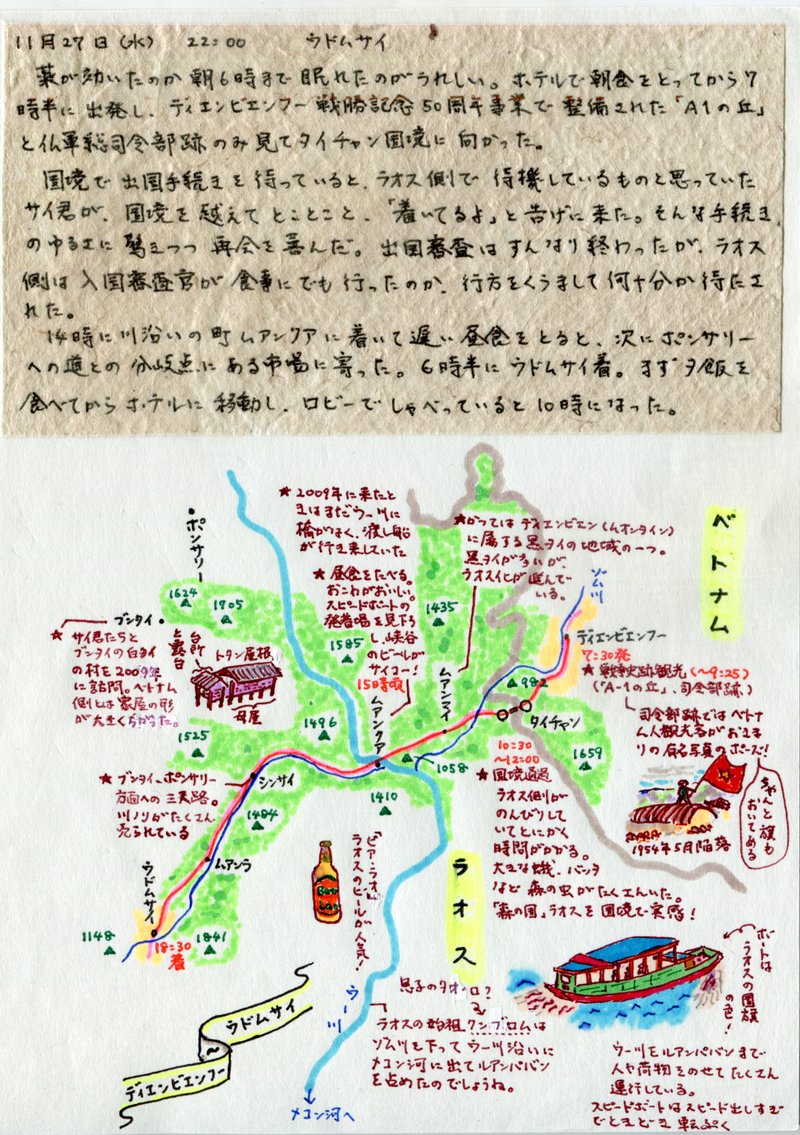 11月27日(水) 22:00 ウドムサイ
薬が効いたのか朝6時まで眠れたのがうれしい。ホテルで朝食をとってから7
時半に出発し、ディエンビエンフー戦勝記念50周年事業で整備された「A1の丘」
と仏軍総司令部跡のみ見てタイチャン国境に向かった。
国境で出国手続きを待っていると、ラオス側で待機しているものと思っていた
サイ君が、国境を越えてとことこと、「着いてるよ」と告げに来た。そんな手続き
のゆるさに驚きつつ再会を喜んだ。出国審査はすんなり終わったが、ラオス
側は入国審査官が食事にでも行ったのか、行方をくらまして何十分か待たさ
れた。
14時に川沿いの町ムアンクアに着いて遅い昼食をとると、次にポンサリー
への道との分岐点にある市場に寄った。6時半にウドムサイ着。まず夕飯を
食べてからホテルに移動し、ロビーでしゃべっていると10時になった。
★2009年に来たと
きはまだウー川に
橋がなく、渡し船
が行き来していた
★かつてはディエンビエン(ムオンタイン)
に属する黒タイの地域の一つ。
黒タイが多いが、
ラオス化が進んで
いる。
ベトナム
ポンサリー
★昼食をたべる。
おこわがおいしい。
スピードボートの
発着場を見下ろ
し、峡谷
のビールが
サイコー!
15時頃
ゾム川
1624
1705
1435
1585
ブンタイ
★サイ君たちと
ブンタイの白タイ
の村を2009年
に訪問。ベトナム
側とは家屋の形
が大きくちがった。
台所
と露台
トタン屋根
母屋
ディエンビエンフー
7:30発
★戦争史跡観光(〜9:25)
(「A-1の丘」、司令部跡)
982
ムアンマイ
ムアンクア
タイチャン
司令部跡ではベトナ
ム人観光客がおきま
りの有名写真のポーズ!
ちゃんと旗も
おいてある
1954年5月陥落
1496
1525
1058
1659
10:30
〜12:00
★国境通過
ラオス側が
のんびりして
いてとにかく
時間がかかる。
大きな蛾、バッタ
など森の虫がたくさんいた。
「森の国」ラオスを国境で実感!
★ブンタイ、ポンサリー
方面への三叉路。
川ノリがたくさん
売られている
シンサイ
1484
1410
ムアンラ
ウドムサイ
1148
18:30
着
1841
「ビア・ラオ」
ラオスのビールが人気!
ラオス
ボートは
ラオスの国旗
の色!
ウー川
息子のタオ・ロ?
ラオスの始祖クンブロムは
ゾム川を下ってウー川沿いに
メコン河に出てルアンパバン
を占めたのでしょうね。
メコン河へ
ウー川をルアンパバンまで
人や荷物をのせてたくさん
運行している。
スピードボートはスピード出しすぎ
でときどき転ぷく
ウドムサイ
〜
ディエンビエンフー